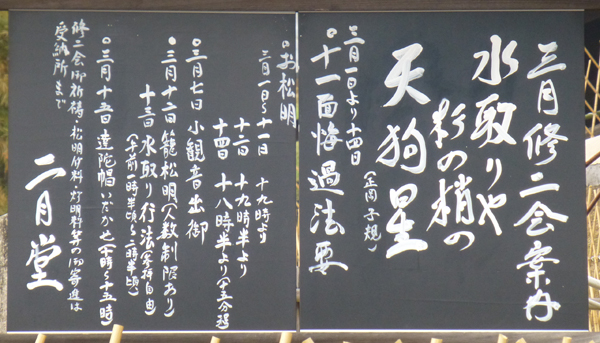 三月修二会案内
水取りや
杉の梢の
天狗星
(正岡子規)
三月一日より十四日
•十一面悔過法要
•お松明
三月一日〜十一日 十九時より
十二日 十九時半より
十四日 十八時半より(十五分程)
三月七日 小観音出御
•三月十二日 籠松明(人数制限あり)
十三日 水取り行法(拝自由)
(午前一時半頃〜二時半頃)
•三月十五日 達陀帽いただかせ(時〜十五時)
修二会御祈祷・松明竹料・灯明料等の御寄進は
受納所まで
二月堂